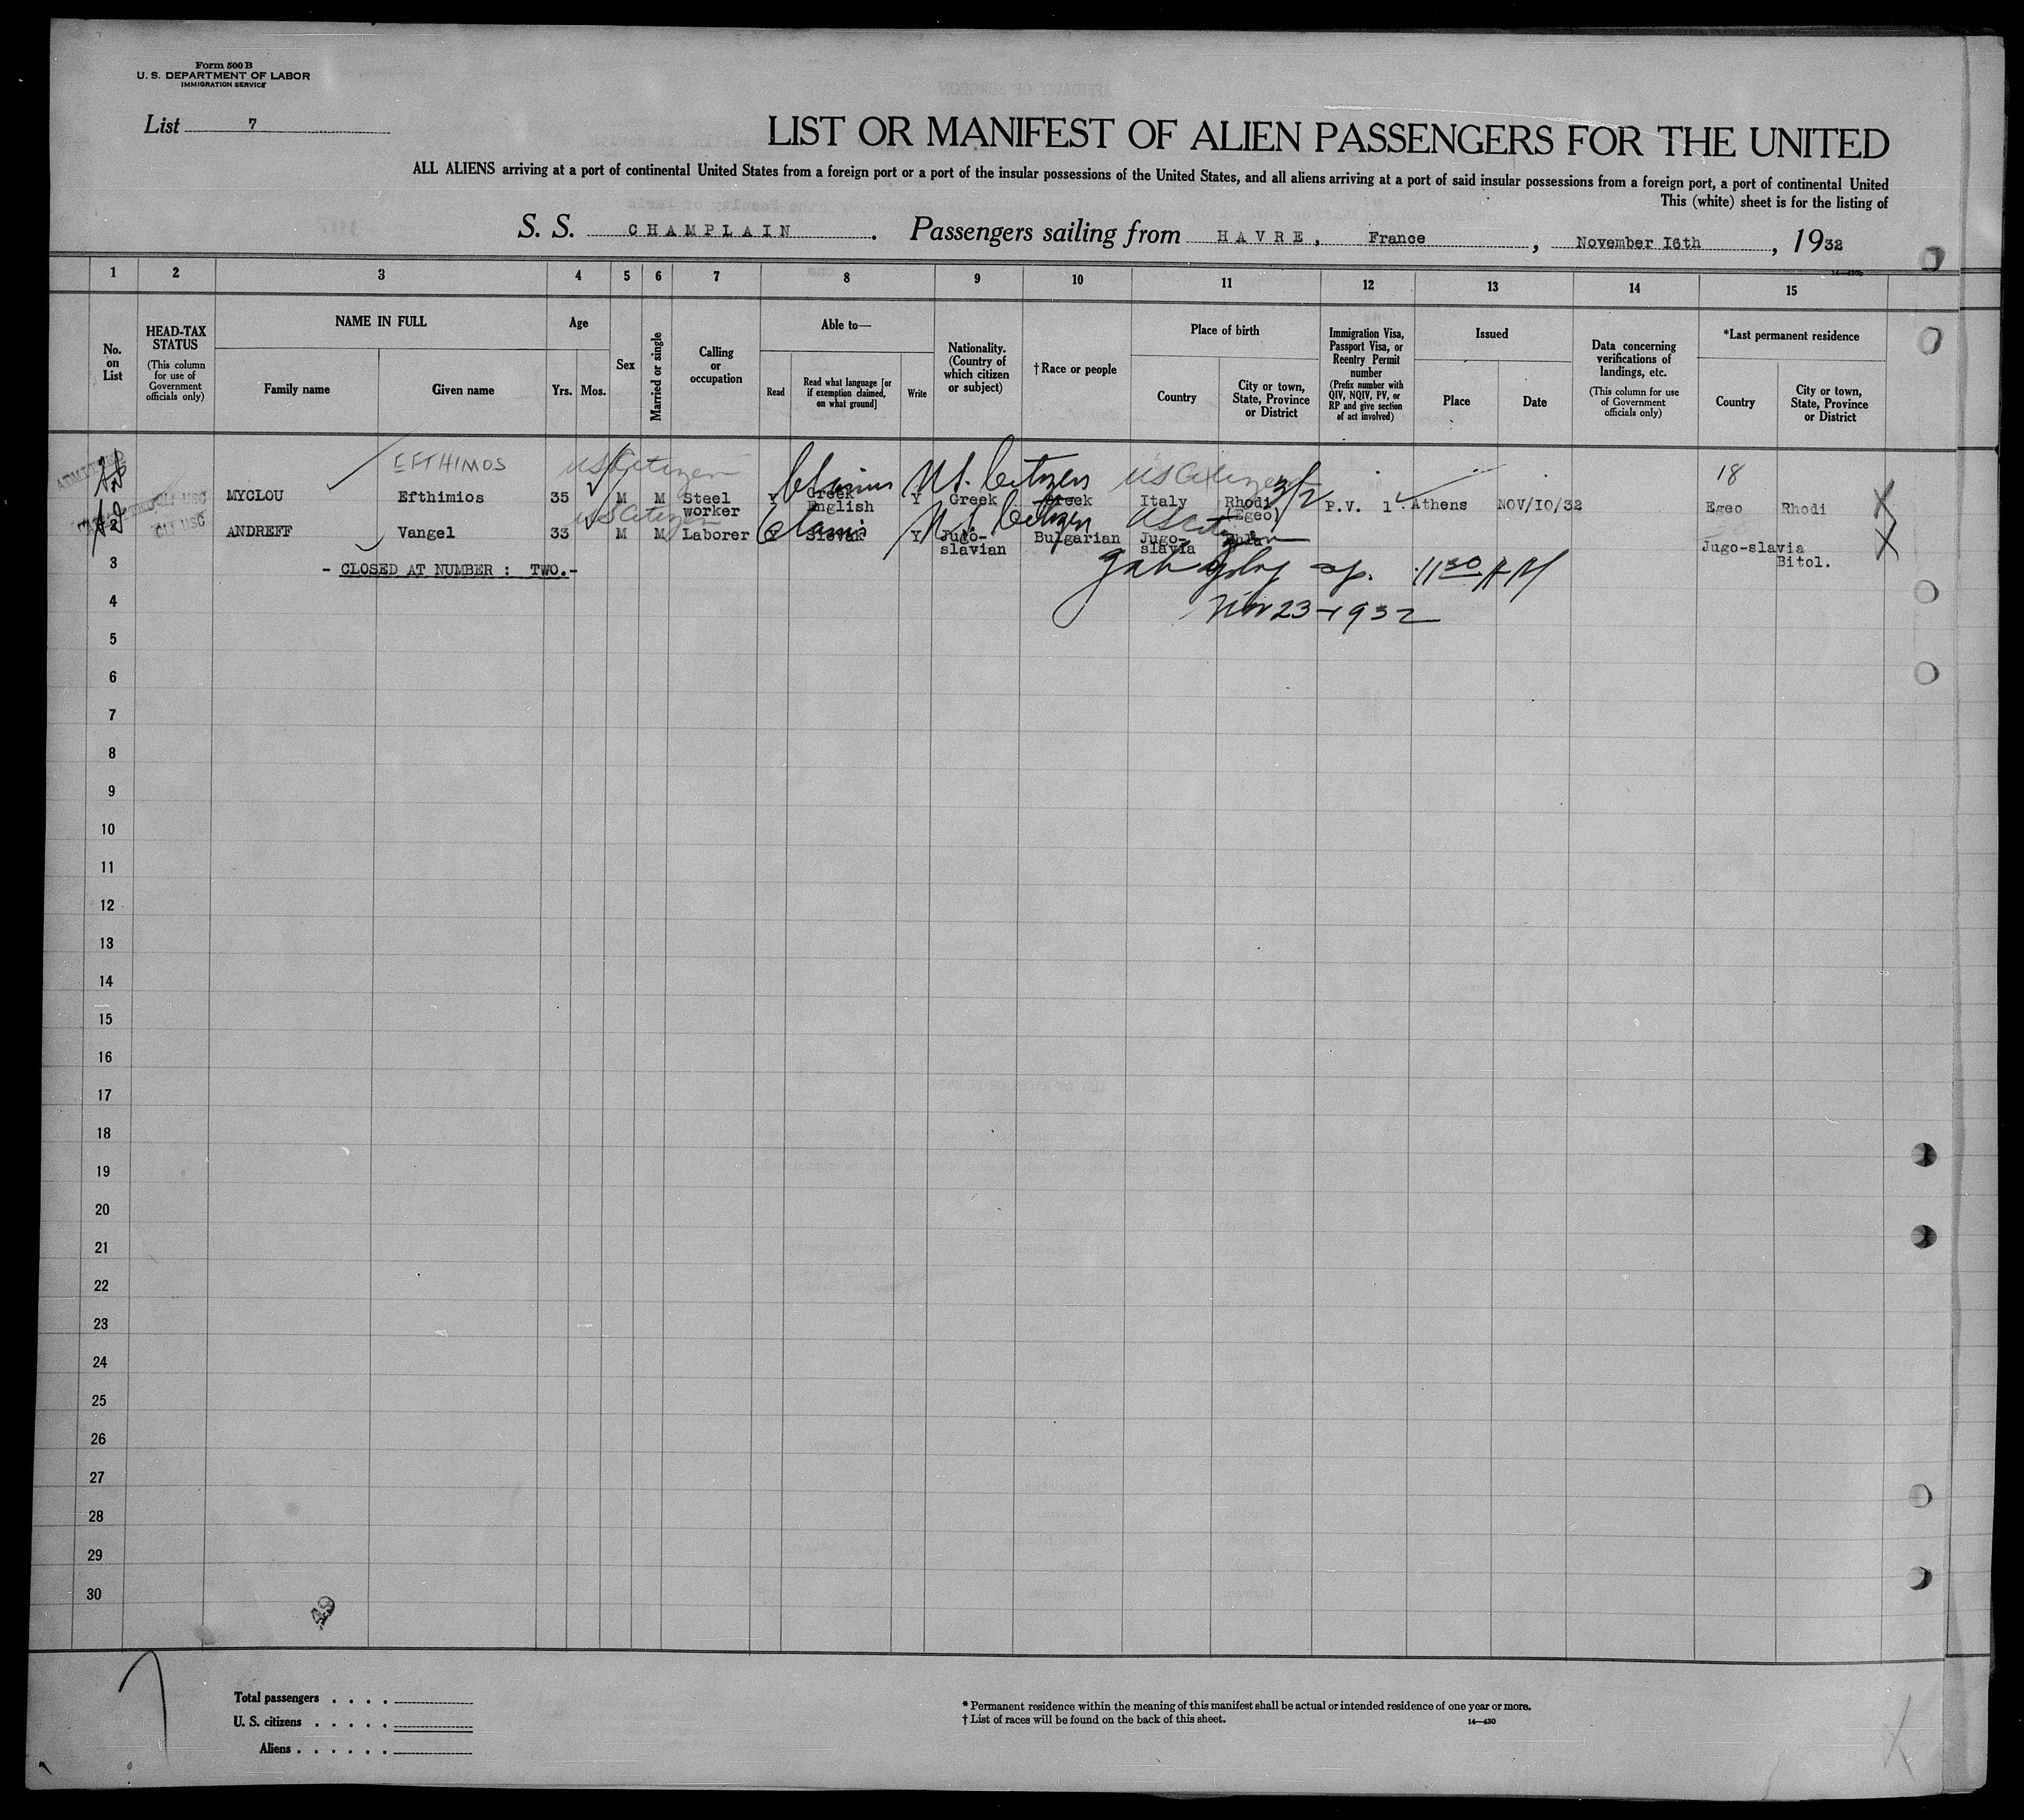 Form 500 B
U. S. DEPARTMENT OF LABOR
IMMIGRATION SERVICE
List 7
LIST OR MANIFEST OF ALIEN PASSENGERS FOR THE UNITED
ALL ALIENS arriving at a port of continental United States from a foreign port or a port of the insular possessions of the United States, and all aliens arriving at a port of said insular possessions from a foreign port, a port of continental United
This (white) sheet is for the listing of
S. S. CHAMPLAIN . Passengers sailing from HAVRE, France , November I6th , 1932
1 2 3 4 5 6 7 8 9 10 11 12 13 14 15
No. on List
HEAD-TAX STATUS
(This column for use of Government officials only)
NAME IN FULL
Family name
Given name
Age
Yrs. Mos.
Sex
Married or single
Calling or occupation
Able to—
Read
Read what language [or if exemption claimed, on what ground]
Write
Nationality. (Country of which citizen or subject)
† Race or people
Place of birth
Country
City or town, State, Province or District
Immigration Visa, Passport Visa, or Reentry Permit number
(Prefix number with QIV, NQIV, PV, or RP and give section of act involved)
Issued
Place
Date
Data concerning verifications of landings, etc.
(This column for use of Government officials only)
*Last permanent residence
Country
City or town, State, Province or District
ADMITTED
EFTHIMOS US Citizen Claims U.S. Citizen US Citizen 18
CLI USC MYCLOU Efthimios 35 M M Steel worker Y Greek English Y Greek Greek Italy Rhodi (Egeo) P.V. 1 Athens NOV/IO/32 Egeo Rhodi
US Citizen Claims U.S. Citizen US Citizen
2 CLI USC ANDREFF Vangel 33 M M Laborer Y Slovak Y Jugo-slavian Bulgarian Jugo-slavia Jugo-slavia Bitol.
3 - CLOSED AT NUMBER : TWO.-
11 30 AM
4 Nov 23-1932
5
6
7
8
9
10
11
12
13
14
15
16
17
18
19
20
21
22
23
24
25
26
27
28
29
30
49
Total passengers . . . .
U. S. citizens . . . . .
Aliens . . . . . .
* Permanent residence within the meaning of this manifest shall be actual or intended residence of one year or more.
† List of races will be found on the back of this sheet.
14—430